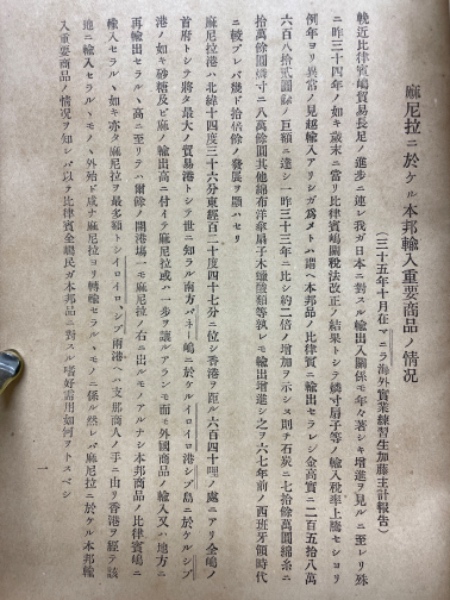 麻尼拉ニ於ケル本邦輸入重要商品ノ情况
(三十五年十月在マニラ海外實業練習生加藤主計報告)
輓近比律賓嶋貿易長足ノ進步ニ連レ我ガ日本ニ對スル輸出入關係モ年々著シキ增進ヲ見ルニ至レリ殊
ニ昨三十四年ノ如キ歲末ニ當リ比律賓嶋關稅法改正ノ結果トシテ燐寸扇子等ノ輸入稅率上騰セシヨリ
例年ヨリ異常ノ見越輸入アリシガ爲メトハ謂ヘ本邦品ノ比律賓ニ輸出セラレシ金高實ニ二百五拾八萬
六百八拾貳圓餘ノ巨額ニ達シ一昨三十三年ニ比シ約二倍ノ增加ヲ示シヌ則チ石炭ニ七拾餘萬圓綿糸ニ
拾萬餘圓燐寸ニ八萬餘圓其他綿布洋傘扇子木蠟酸類等孰レモ輸出增進シ之ヲ六七年前ノ西班牙領時代
ニ較ブレバ幾ド拾倍餘ノ發展ヲ顯ハセリ
麻尼拉港ハ北緯十四度三十六分東經百二十度四十七分ニ位シ香港ヲ距ル六百四十哩ノ處ニアリ全嶋ノ
首府トシテ將タ最大ノ貿易港トシテ世ニ知ラル南方パネー嶋ニ於ケルイロイロ港シブ島ニ於ケルシブ
港ノ如キ砂糖及ビ麻ノ輸出高ニ付イテ麻尼拉或ハ一步ヲ讓ルアランモ而モ外國商品ノ輸入又ハ地方ニ
再輸出セラルヽ高ニ至リテハ爾餘ノ開港場一モ麻尼拉ノ右ニ出ルモノアルナシ本邦商品ノ比律賓嶋ニ
輸入セラルヽ如キ亦タ麻尼拉ヲ最多額トシイロイロ、シブ兩港ヘハ支那商人ノ手ニ由リ香港ヲ經テ該
地ニ輸入セラルヽモノヽ外殆ド咸ナ麻尼拉ヨリ轉輸セラルヽモノニ係ル然レバ麻尼拉ニ於ケル本邦輸
入重要商品ノ情况ヲ知シバ以テ比律賓全嶋民ガ本邦品ニ對スル嗜好需用如何ヲトスベシ
一